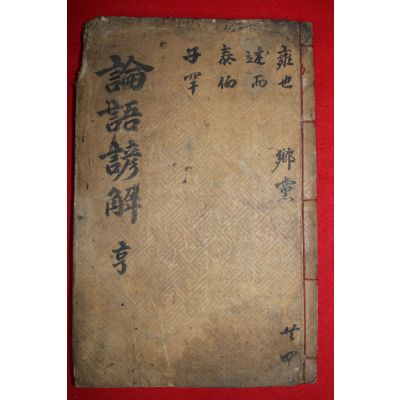 雍也
述而
泰伯
子罕
鄕黨
論語諺解 亨
共四